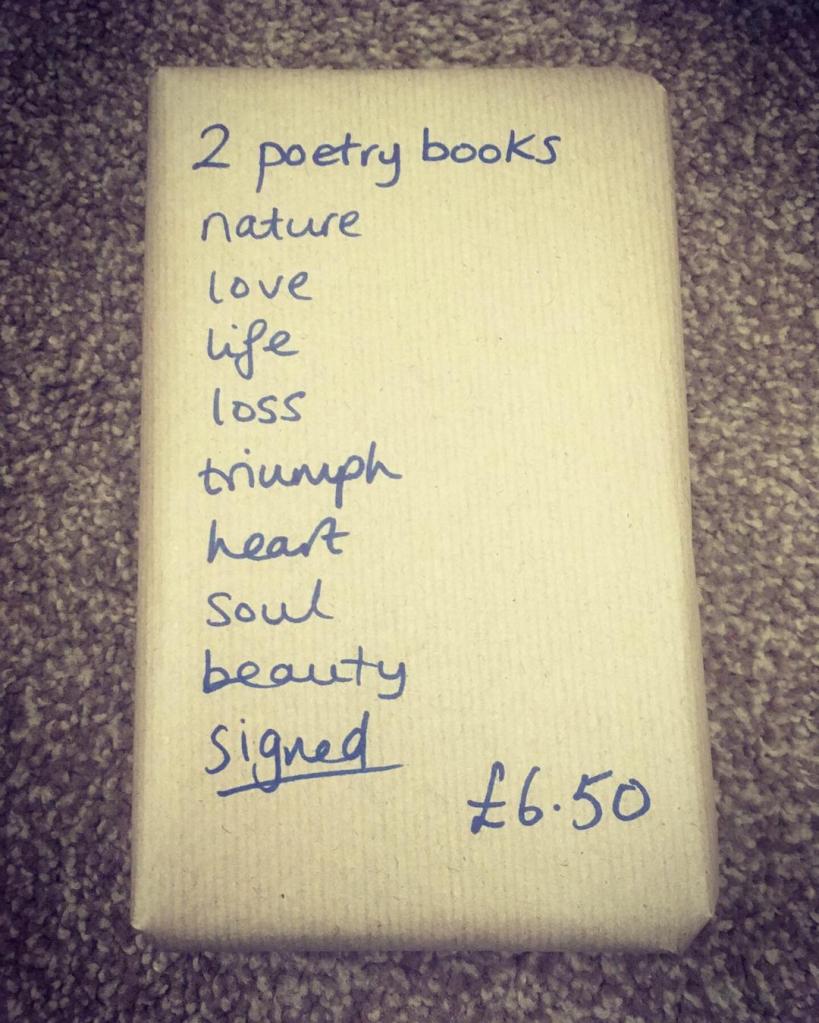 2 poetry books
nature
love
life
loss
triumph
heart
soul
beauty
signed
£6.50